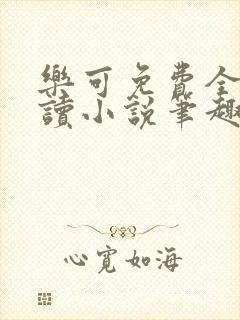 樂可免費全
讀小說筆趣
心寬如海